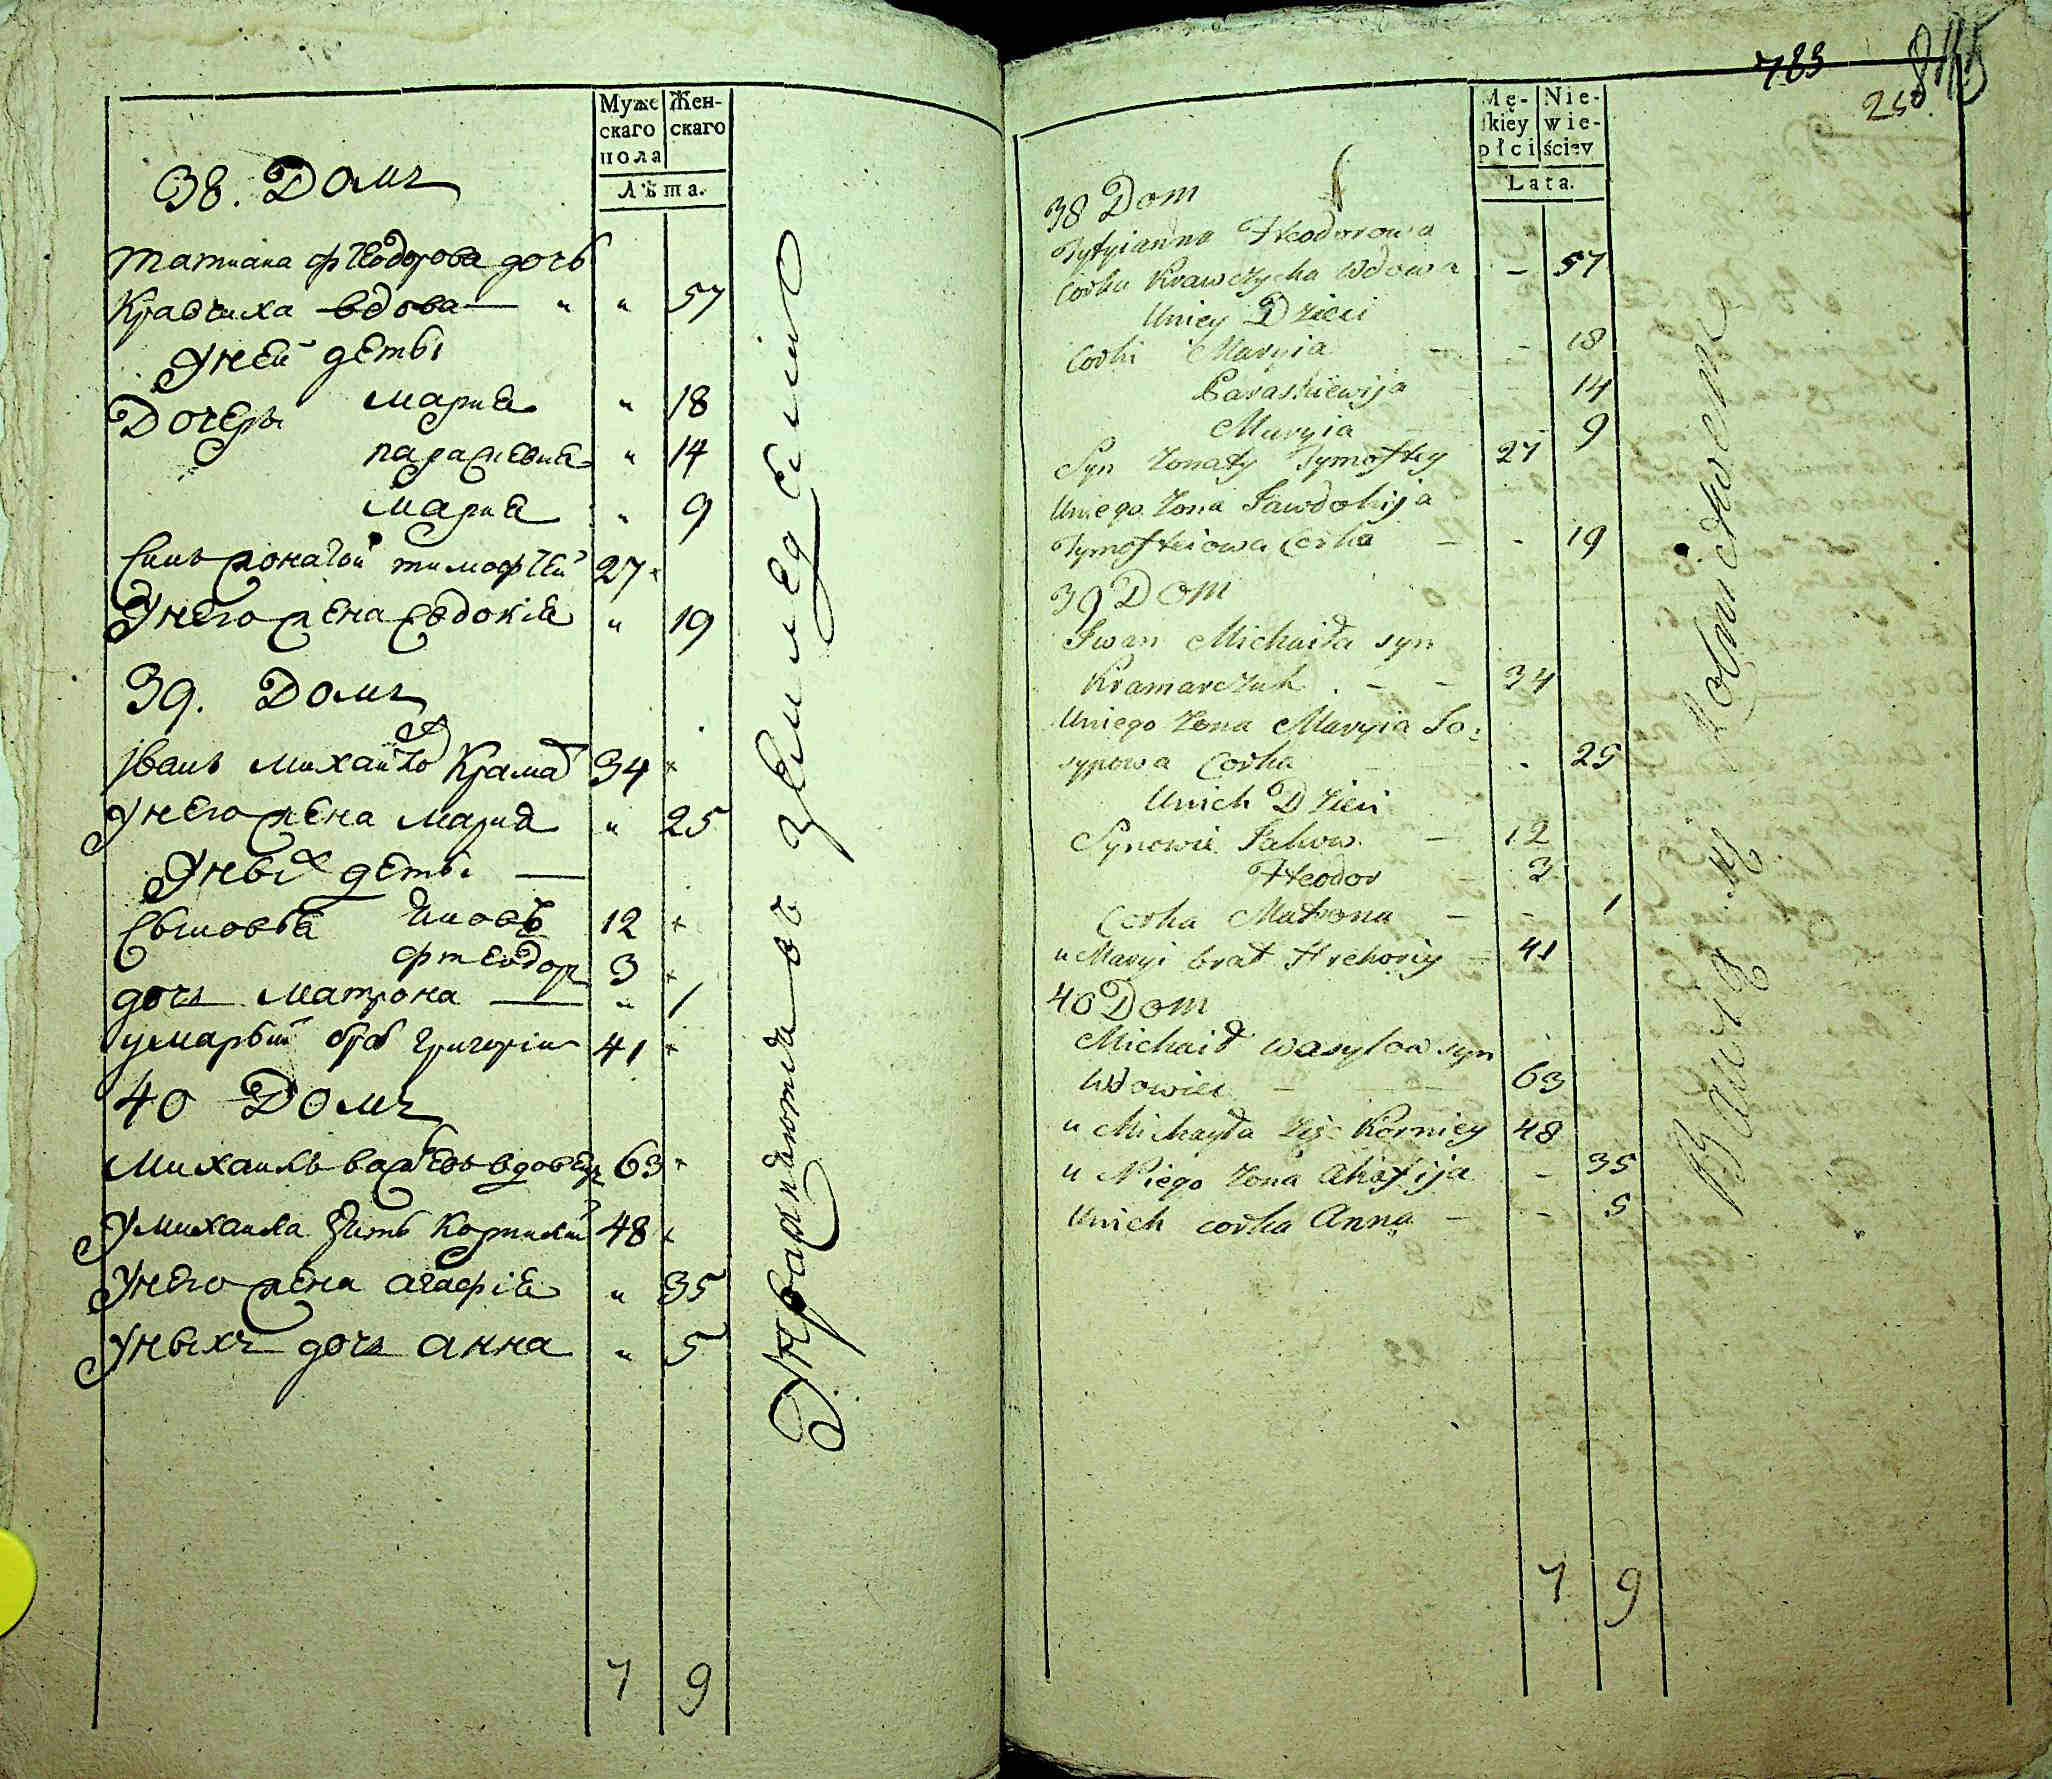 Муже
скаго
пола
Жен-
скаго
Лѣта.
38. Домъ
Татиана фтеодорова дочь
Кравчиха вдова — " " 57
Унеи дѣти
Дочеръ мариа " 18
параскевиа " 14
мариа " 9
Синъ жонатои тимофтеи 27
Унего жена евдокіа " 19
39. Домъ
Іванъ михаило Крамаr 34
Унего жена мариа " 25
Уныхъ дѣти —
Сыновѣа Яковъ 12
фтеодоръ 3
дочь матрона — " 1
умарыи братъ григории 41
40 Домъ
Михаилъ василевъ вдовецъ 63
Умихаила зять Корнилии 48
Унего жена агафіа " 35
Уныхъ дочь анна " 5
7 9
783
845
250
Mę-
skiey
płci
Nie-
wie-
ściey
Lata.
38 Dom
Tytyianna Fteodorowa
Corka Krawczycha Wdowa - 57
Uniey Dzieci
Corki Maryia - - 18
Paraskiewija 14
Maryia - 9
Syn Zonaty Tymoftey 27
Uniego Zona Jawdokija
Tymofteiowa Corka - - 19
39 Dom
Jwan Michaiła syn
Kramarczuk . - - 34
Uniego Zona Maryia Jo:
sypowa Corka - 25
Unich Dzieci
Synowie Jakow - 12
Fteodor - 3
Corka Matrona - - 1
u Maryi brat Hrehoriy - 41
40 Dom
Michaił wasylow syn
Wdowiec - 63
u Michayła Zięc Korniey 48
u Niego Zona Ahafija - 35
Unich corka Anna - - 5
7 9